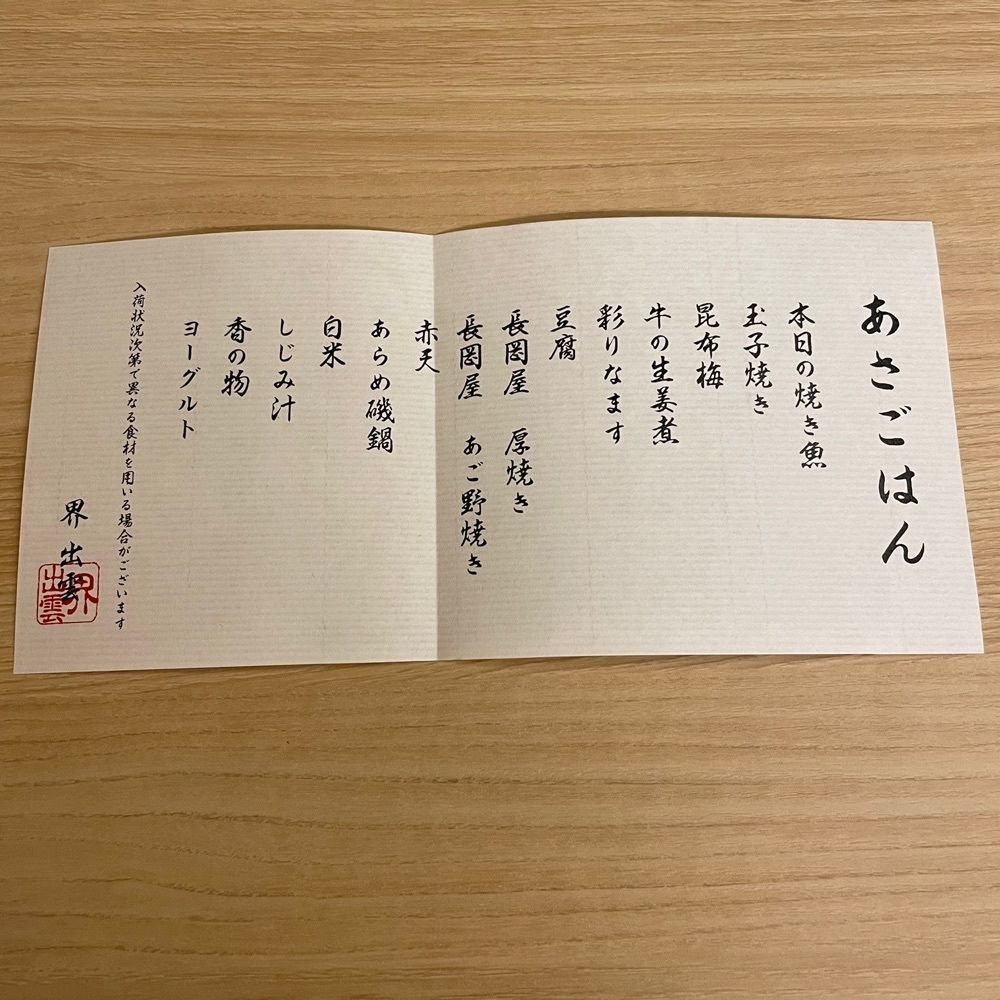 あさごはん
本日の焼き魚
玉子焼き
昆布梅
牛の生姜煮
彩りなます
豆腐
長岡屋 厚焼き
長岡屋 あご野焼き
赤天
あらめ磯鍋
白米
しじみ汁
香の物
ヨーグルト
入荷状況次第で異なる食材を用いる場合がございます
界 出雲
界
出雲